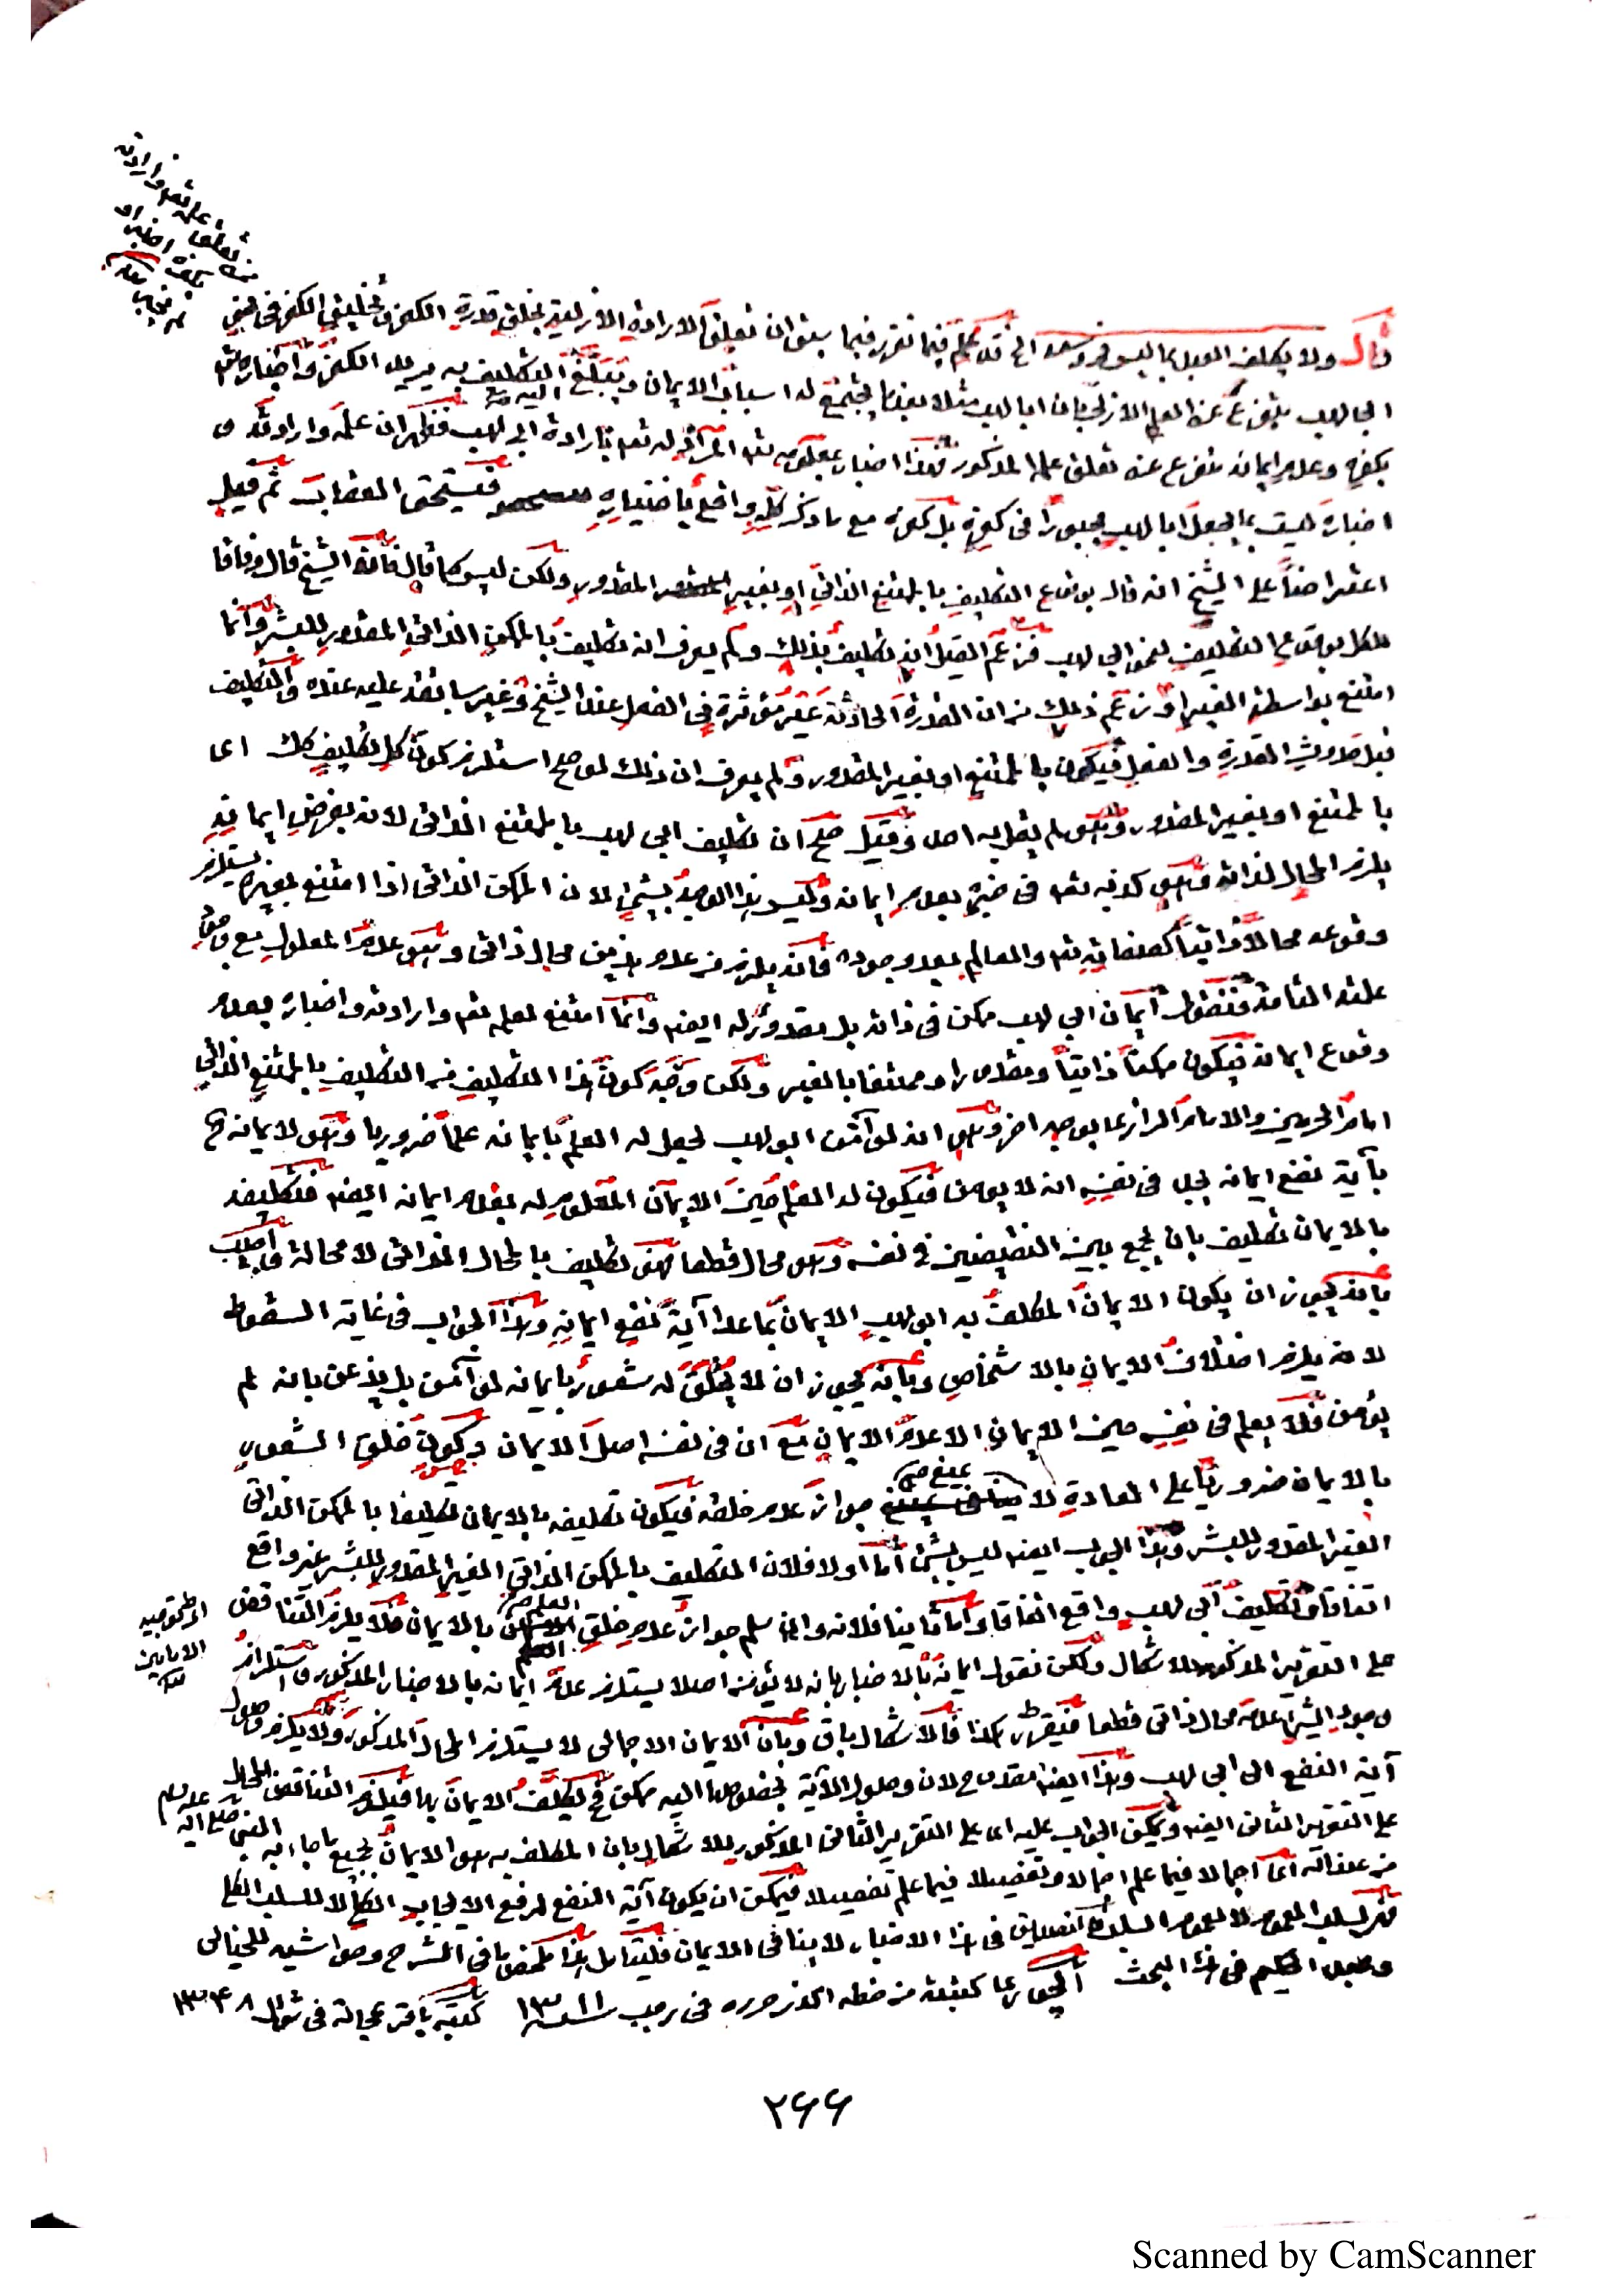 قال ولا يكلف العبد بما ليس في وسعه الخ قد علم فيما تقرر فيما سبق ان تعلق الارادة الازلية بخلق قدرة الكفر وتخليق الكفر في
ابي لهب متفرع عن العلم الازلي بان ابا لهب مثلا بعدما يجتمع له اسباب الايمان ويبلغ التكليف به اليه يريد الكفر واخباره تعالى
بكفره وعدم ايمانه متفرع عنه تعلق علمه المذكور فهذا اخبار بمعلومه تعالى له تعالى بارادة ابي لهب فظهر ان علمه وارادته و
اخباره ليست بما يجعل ابا لهب مجبورا في كفره بل كفره مع ما ذكر كله واقع باختياره فيستحق العقاب ثم قيل
اعتراضا على الشيخ انه قال بوقوع التكليف بالممتنع الذاتي او بغير المقدور ولكن ليس كما قال فانه الشيخ قال وفاقا
للكل بوقوع التكليف لنحو ابي لهب فزعم القيل ان تكليف بذلك ولم يعرف انه تكليف بالممكن الذاتي المقدور للبشر وانما
امتنع بواسطة الغير او زعم ذلك من ان القدرة الحادثة غير مؤثرة في الفعل عند الشيخ وغير سابقة عليه عنده والتكليف
قبل حدوث القدرة والفعل فيكون بالممتنع او بغير المقدور ولم يعرف ان ذلك لو صح استلزم كون كل تكليف كذلك اى
بالممتنع او بغير المقدور وهو لم يقل به احد وقيل صح ان تكليف ابي لهب بالممتنع الذاتي لانه بفرض ايمانه
يلزم المحال لذاته وهو كذبه تعالى في خبره بعدم ايمانه وليس هذا الوجه بشئ لان الممكن الذاتي اذا امتنع لغيره يستلزم
وقوعه محالا ذاتيا كصفاته تعالى والعالم بعد وجوده فانه يلزم من عدم هذين محال ذاتي وهو عدم المعلول مع وجود
علته التامة فنقول ايمان ابي لهب ممكن في ذاته بل مقدور له ايضا وانما امتنع لعلمه تعالى وارادته واخباره بعدم
وقوع ايمانه فيكون ممكنا ذاتيا ومقدورا وممتنعا بالغير ولكن وجه كون هذا التكليف من التكليف بالممتنع الذاتي
امام الحرمين والامام الرازي بما بوجه اخر وهو انه لو آمن ابو لهب لحصل له العلم بايمانه علما ضروريا وهو لايمانه ح
بآية نفع ايمانه يجد في نفسه انه لا يؤمن فيكون له العلم حين الايمان المعلوم له بعدم ايمانه ايضا فتكليفه
بالايمان تكليف بان يجمع بين النقيضين في نفسه وهو محال قطعا فهو تكليف بالمحال الذاتي لا محالة واجيب
بانه يجوز ان يكون الايمان المكلف به ابو لهب الايمان بما عدا آية نفع ايمانه وهذا الجواب في غاية السقوط
لانه يلزم اختلاف الايمان بالاشخاص وبانه يجوز ان لا يخلق له شعور بايمانه لو آمن بل يذعن بانه لم
يؤمن فلا يعلم في نفسه حين الايمان الا عدم الايمان مع ان في نفسه اصل الايمان وكون خلق الشعور
بالايمان ضروريا على العادة لا يمنع جواز عدم خلقه فيكون تكليفه بالايمان تكليفا بالممكن الذاتي
الغير المقدور للبشر وهذا الجواب ايضا ليس بشئ اما اولا فلان التكليف بالممكن الذاتي الغير المقدور للبشر غير واقع
اتفاقا وتكليف ابي لهب واقع اتفاقا واما ثانيا فلانه وان سلم جواز عدم خلق العلم بالايمان فلا يلزم التناقض
على التقرير المذكور للاشكال ولكن نقول ايمانه بالاخبار بانه لا يؤمن اصلا يستلزم عدم ايمانه بالاخبار المذكور واستلزام
وجود الشئ عدمه محال ذاتي قطعا فيقرر هكذا فالاشكال باق وبان الايمان الاجمالي لا يستلزم المحال المذكور ولا يلزم وصول
آية النفع الى ابي لهب وهذا ايضا مقدوح لان وصول الآية بخصوصها اليه ممكن فح يكلف الايمان بها فيلزم التناقض المحال
على التقرير الثاني ايضا ويمكن الجواب عليه اى على التقرير الثاني المذكور للاشكال بان المكلف به هو الايمان بجميع ما جاء به النبي صلى الله عليه وسلم
من عند الله اى اجمالا فيما علم اجمالا وتفصيلا فيما علم تفصيلا فيمكن ان يكون آية النفع لرفع الايجاب الكلي لا للسلب الكلي
لسلب العموم لا لعموم السلب فالتصديق في هذا الاخبار لا ينافي الايمان فليتأمل هذا ملخص ما في الشرح وحواشيه للخيالي
وعبد الحكيم في هذا البحث الجوار بما كتبته من خطه الذي حرره في رجب سنة ١٣١١ كتبه باقر عجالة في شوال ١٣٤٨
الامامين
٢٦٦
Scanned by CamScanner